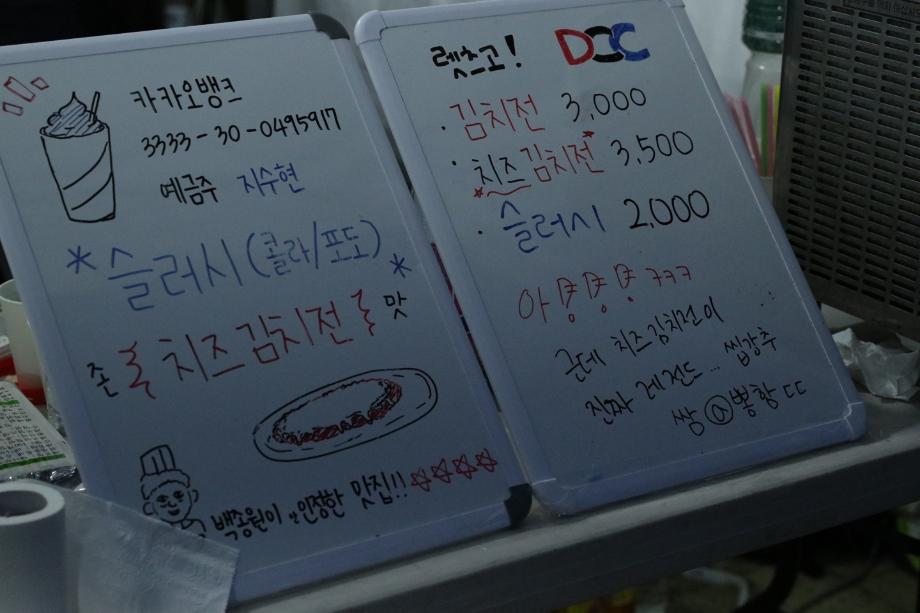 카카오뱅크
3333-30-0495917
예금주 지수현
*슬러시(콜라/포도)*
존 치즈김치전 맛
백종원이 안 인정한 맛집!!
렛츠고! DCC
· 김치전 3,000
· 치즈김치전 3,500
· 슬러시 2,000
아 ㅋㅋㅋ
근데 치즈김치전이
진짜 레전드... 씹강추
쌍 뽕함 ㄷㄷ